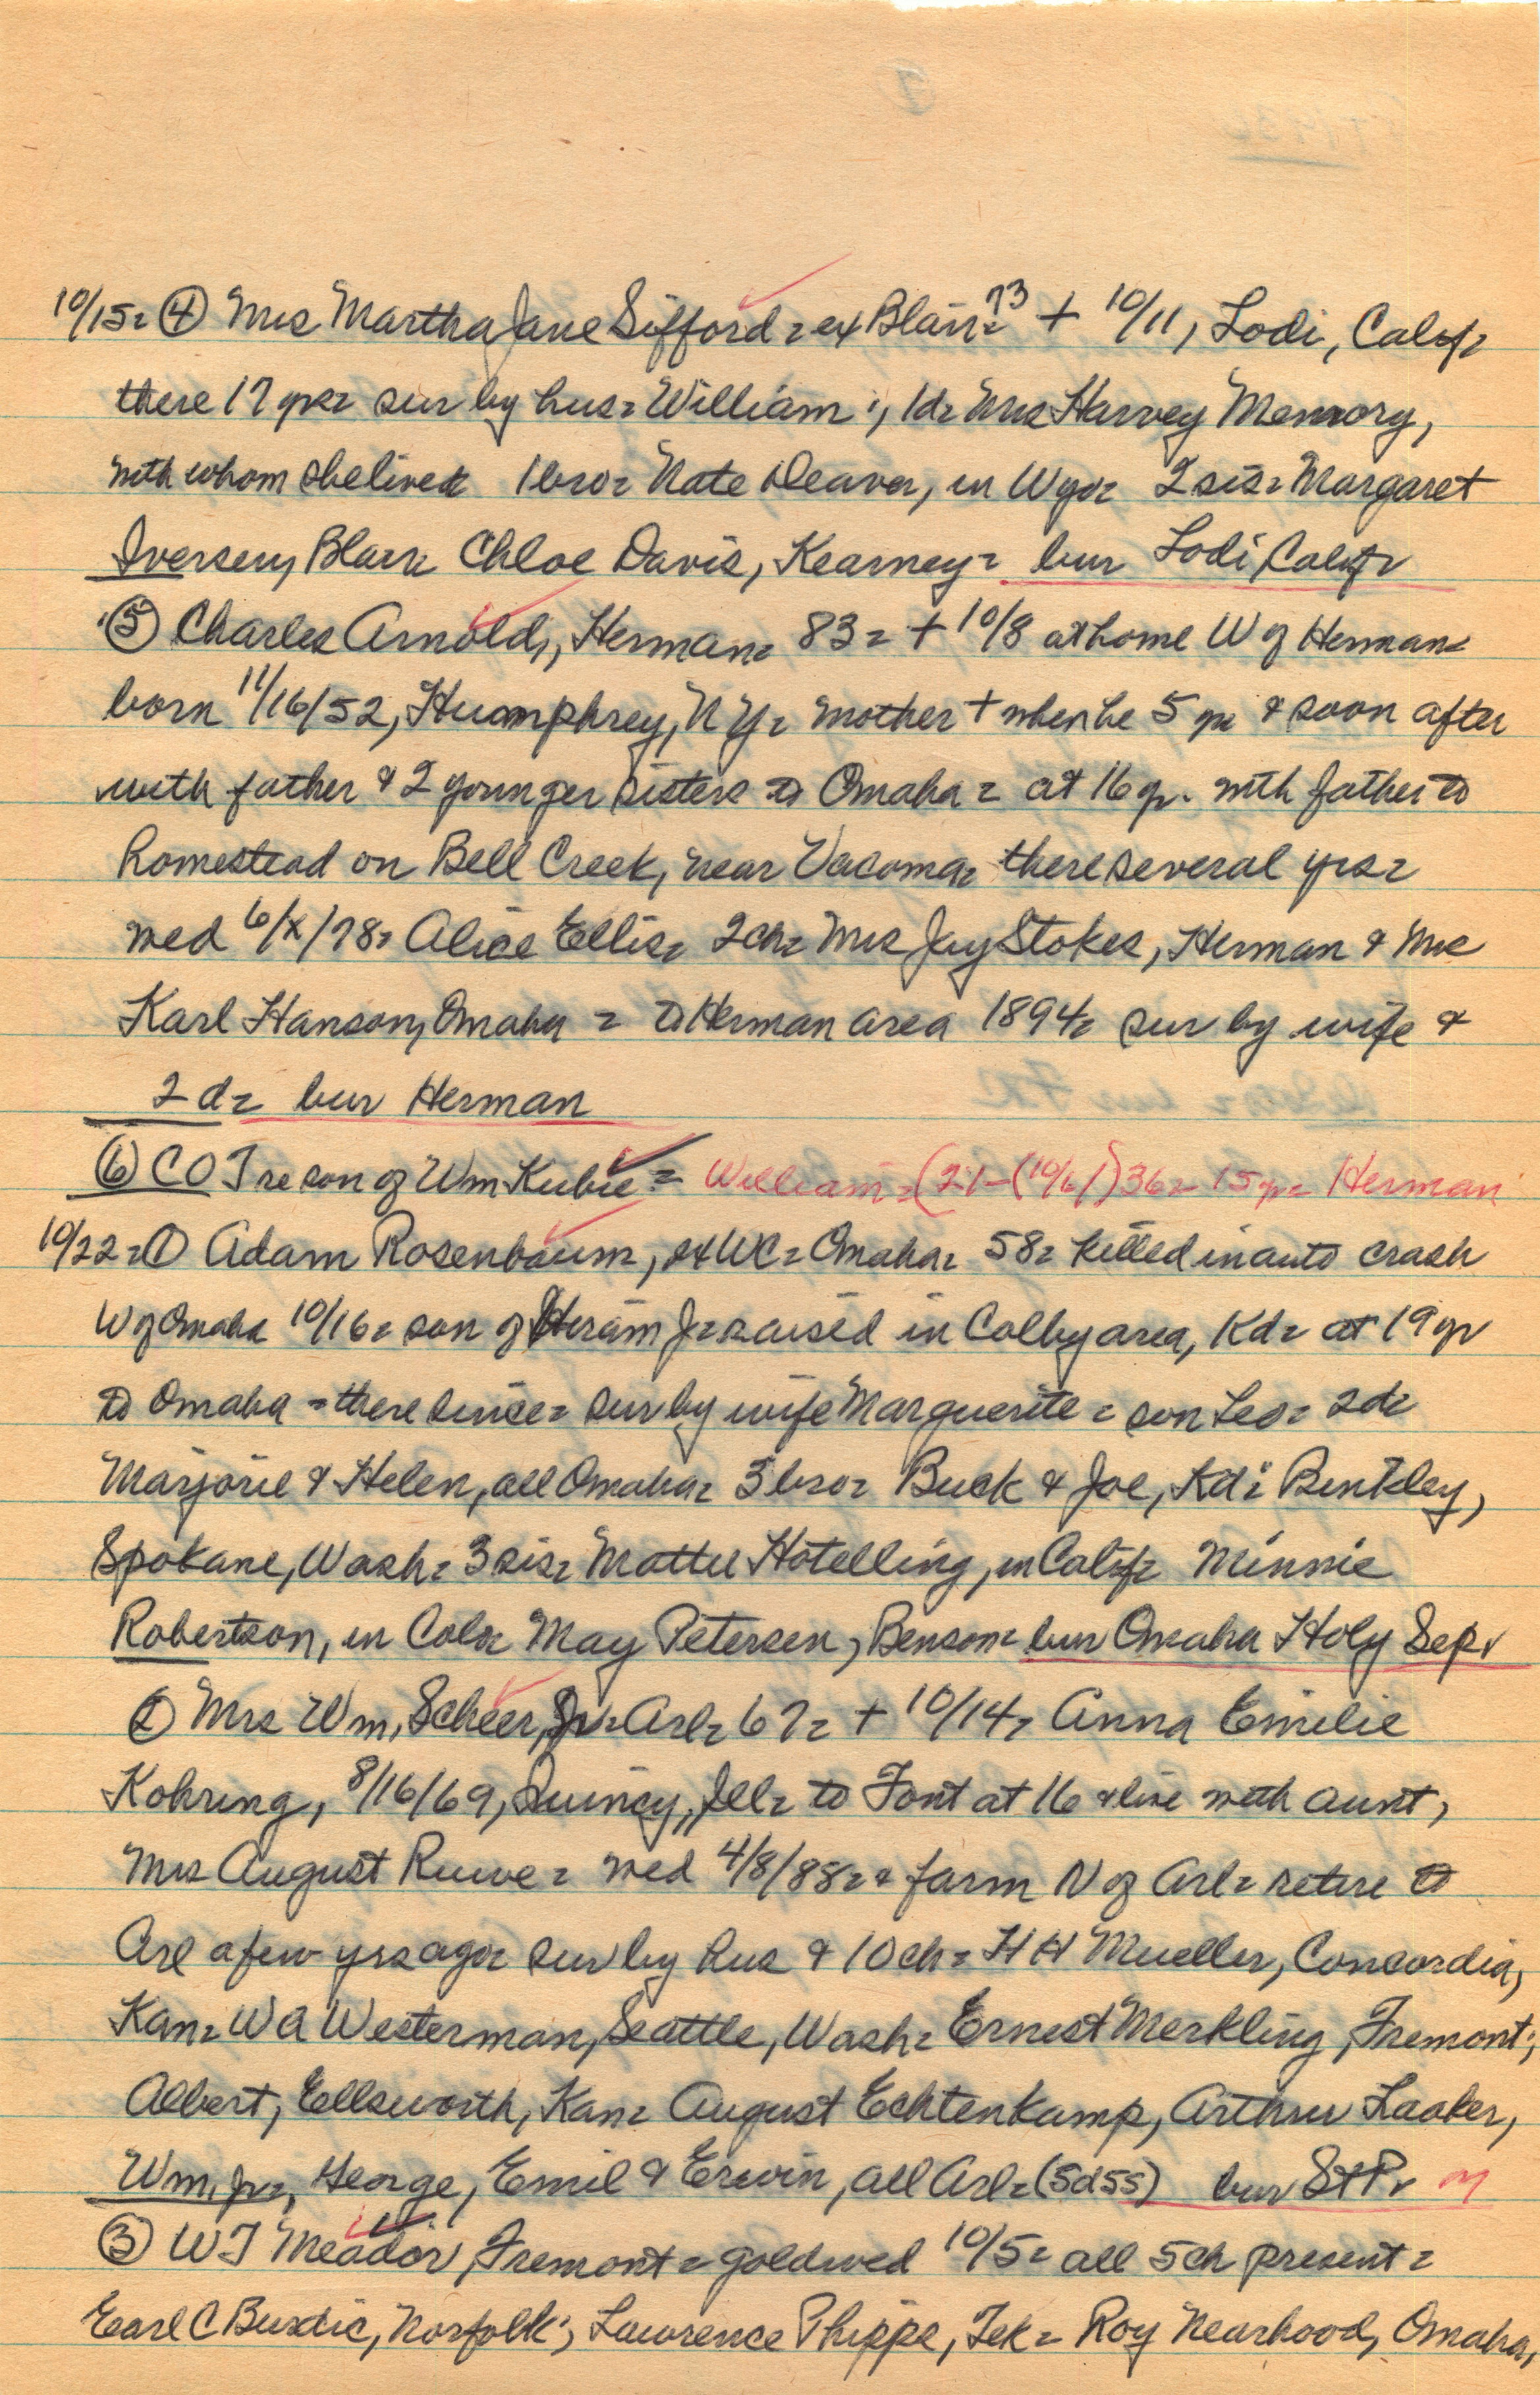 10/15= ④ Mrs Martha Jane Sifford = ex Blair= 73 + 10/11, Lodi, Calif=
there 17 yrs= sur by hus= William; 1d= Mrs Harvey Memory,
with whom she lived 1 bro= Nate Deaver, in Wyo= 2 sis= Margaret
Iversen, Blair Chloe Davis, Kearney= bur Lodi Calif=
⑤ Charles Arnold, Herman= 83= + 10/8 at home W of Herman=
born 11/16/52, Humphrey, N Y= mother + when he 5 yr & soon after
with father & 2 younger sisters to Omaha = at 16 yr. with father to
homestead on Bell Creek, near Vacoma= there several yrs=
wed 6/x/78= Alice Ellis= 2ch= Mrs Jay Stokes, Herman & Mrs
Karl Hanson, Omaha = to Herman area 1894= sur by wife &
2 d= bur Herman
⑥ C O T re son of Wm Kubie = William = (21-(10/6/)36= 15 yr= Herman
10/22= ① Adam Rosenbaum, ex WC= Omaha= 58= killed in auto crash
W of Omaha 10/16= son of Hiram J= raised in Colby area, Kd= at 19 yr
to Omaha = there since= sur by wife Marguerite = son Leo= 2d=
Marjorie & Helen, all Omaha= 3 bro= Buck & Joe, Kd= Binkley,
Spokane, Wash= 3 sis= Mattie Hotelling, in Calif= Minnie
Robertson, in Colo= May Petersen, Benson= bur Omaha Holy Sep=
② Mrs Wm. Scheer, Sr= Arl= 67= + 10/14= Anna Emilie
Kohring, 8/16/69, Quincy, Ill= to Font at 16 & live with aunt,
Mrs August Ruwe = wed 4/8/88= & farm N of Arl= retire to
Arl a few yrs ago= sur by hus & 10 ch= H H Mueller, Concordia,
Kan= W A Westerman, Seattle, Wash= Ernest Merkling, Fremont;
Albert, Ellsworth, Kan= August Echtenkamp, Arthur Laaker,
Wm. Jr=, George, Emil & Erwin, all Arl= (5d5s) bur St P=
③ W T Meador, Fremont = gold wed 10/5= all 5 ch present =
Earl C Burdic, Norfolk; Lawrence Phipps, Tek= Roy Nearhood, Omaha,